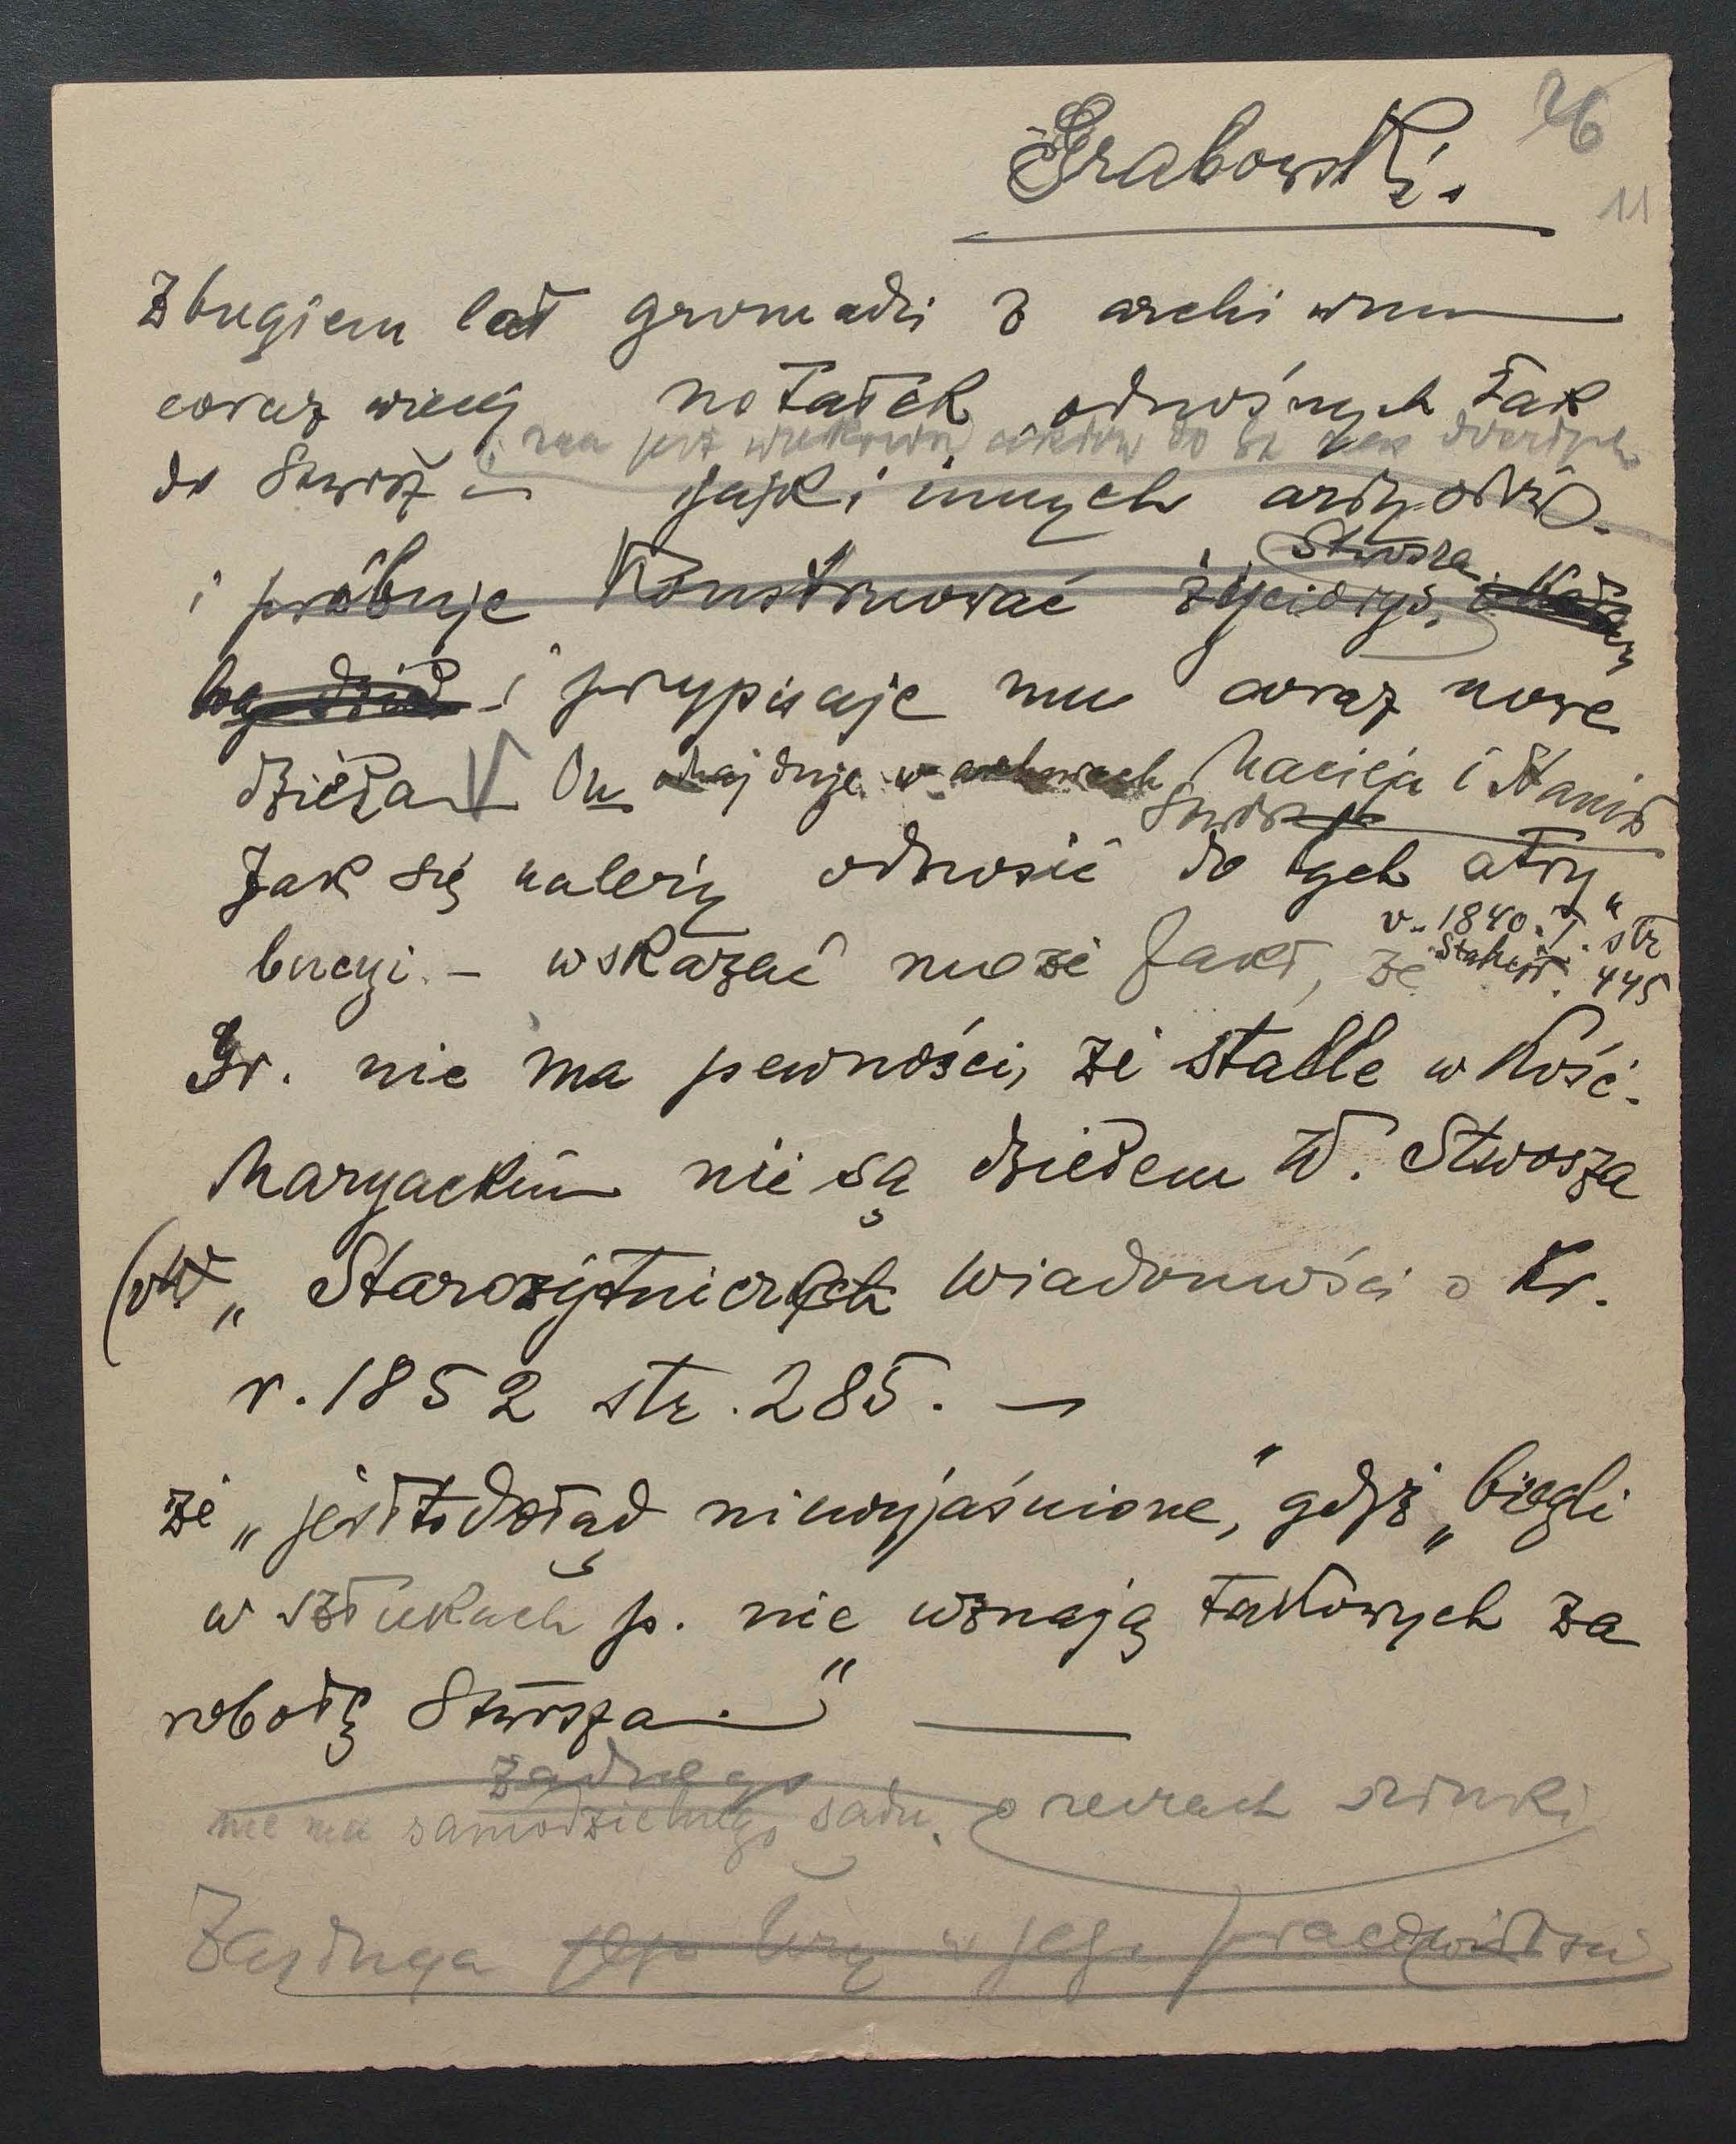 26
Grabowski.
11
Z biegiem lat gromadzi z archiwum
coraz więcej notatek odnośnych tak
do Stwosz jak i innych artystów.
i próbuje Konstruować życiorys, Stwosza
i przypisuje mu coraz nowe
dzieła On znajduje w archiwach Macieja i Stanis
Stwosz
Jak się należy odnosić do tych atry„
bucyi. – wskazać może fakt, że
v. 1840. T. str
445
Gr. nie ma pewności, że stalle w Kość.
Maryackim nie są dziełem W. Stwosza
( „Starożytniczych Wiadomości o Kr.
r. 1852 str. 285. –
że „jest to dotąd niewyjaśnione," gdyż „biegli
w sztukach p. nie uznają takowych za
robotę Stwosza."
żadnego
nie ma samodzielnego sądu. o rzeczach sztuki
Zasługa jego leży w jego